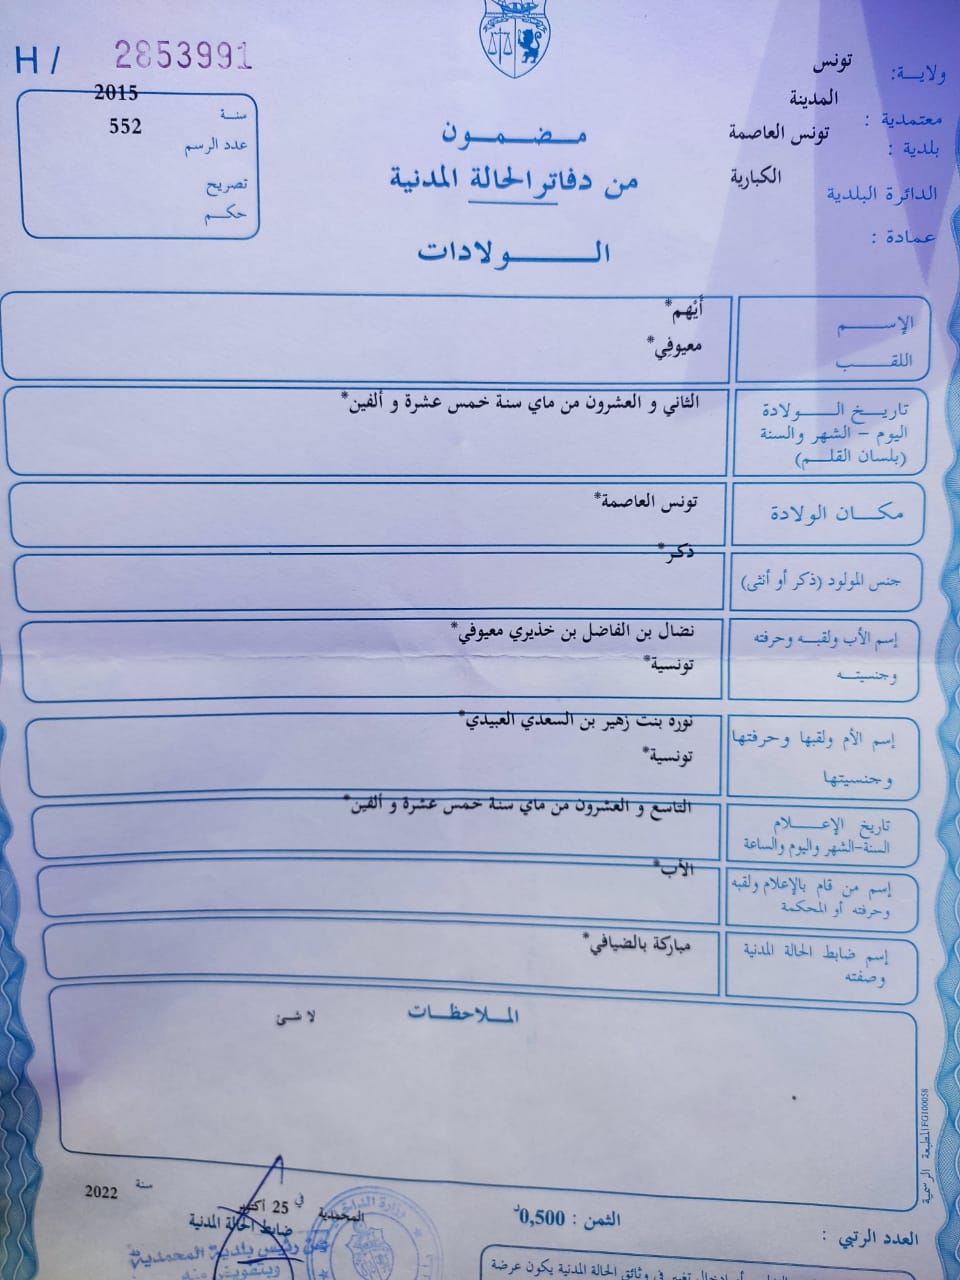 H / 2853991
ولاية: تونس
معتمدية : المدينة
بلدية : تونس العاصمة
الدائرة البلدية الكبارية
عمادة :
سنة 2015
عدد الرسم 552
تصريح
حكم
مضمون
من دفاتر الحالة المدنية
الولادات
الإسم أَيْهم*
اللقب معيوفي*
تاريخ الولادة
اليوم - الشهر والسنة
(بلسان القلم)
الثاني و العشرون من ماي سنة خمس عشرة و ألفين*
مكان الولادة تونس العاصمة*
جنس المولود (ذكر أو أنثى) ذكر*
إسم الأب ولقبه وحرفته
وجنسيته
نضال بن الفاضل بن خذيري معيوفي*
تونسية*
إسم الأم ولقبها وحرفتها
وجنسيتها
نوره بنت زهير بن السعدي العبيدي*
تونسية*
تاريخ الإعلام
السنة-الشهر واليوم والساعة
التاسع و العشرون من ماي سنة خمس عشرة و ألفين*
إسم من قام بالإعلام ولقبه
وحرفته أو المحكمة
الأب*
إسم ضابط الحالة المدنية
وصفته
مباركة بالضيافي*
الملاحظات
لا شئ
المطبعة الرسمية IFG100058
العدد الرتبي :
الثمن : 0,500د
المحمدية في 25 أكتوبر سنة 2022
ضابط الحالة المدنية
عن رئيس بلدية المحمدية
وبتفويض منه
في وثائق الحالة المدنية يكون عرضة